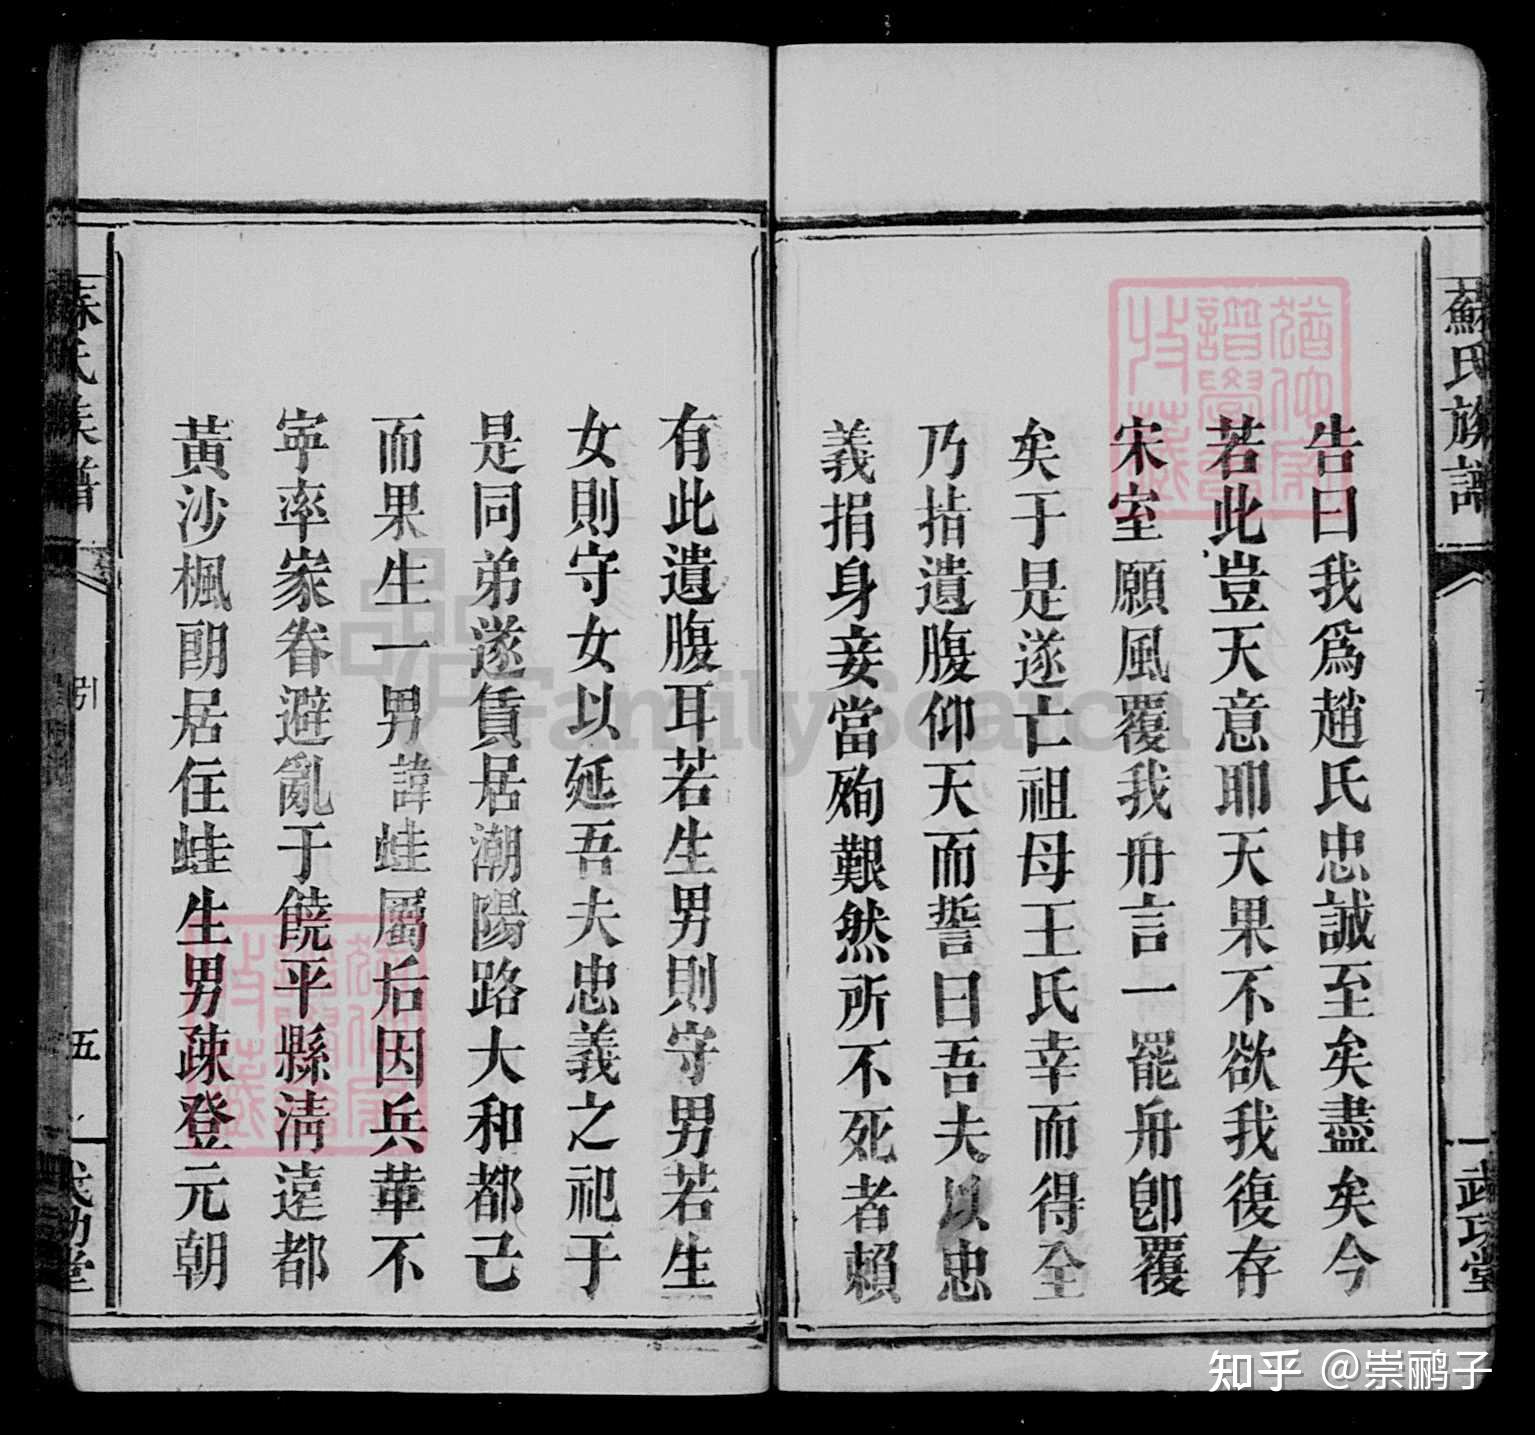 蘇氏族譜
武功堂
告曰我爲趙氏忠誠至矣盡矣今
若此豈天意耶天果不欲我復存
宋室願風覆我舟言一罷舟卽覆
矣于是遂亡祖母王氏幸而得全
乃指遺腹仰天而誓曰吾夫以忠
義捐身妾當殉艱然所不死者賴
有此遺腹耳若生男則守男若生
女則守女以延吾夫忠義之祀于
是同弟遂賃居潮陽路大和都己
而果生一男諱畦屬后因兵革不
寧率家眷避亂于饒平縣清遠都
黃沙楓朗居住畦生男疎登元朝
蘇氏族譜
引
五
武功堂
FamilySearch
知乎 @崇鹂子